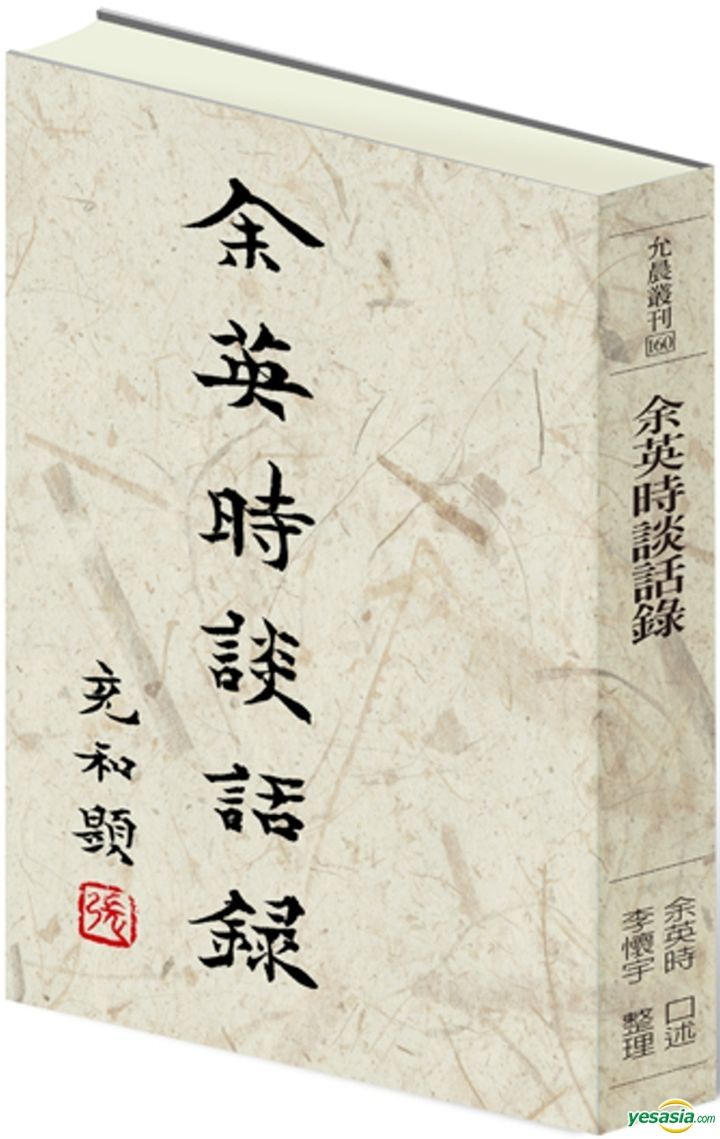 余英時談話錄
充和題
張
允晨叢刊 160
余英時談話錄
余英時 口述
李懷宇 整理
yesasia.com